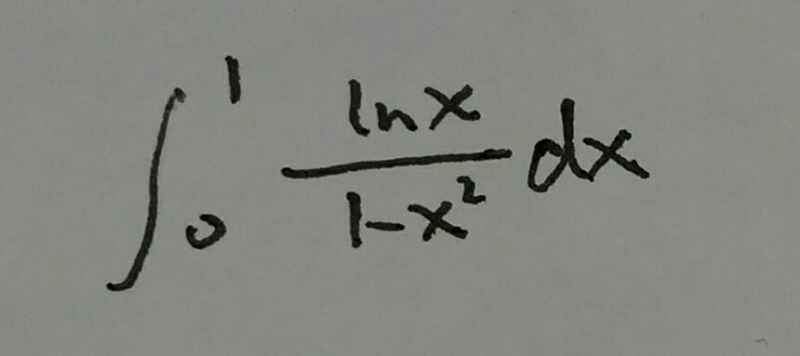 ∫₀¹ \frac{\ln x}{1-x^2} dx